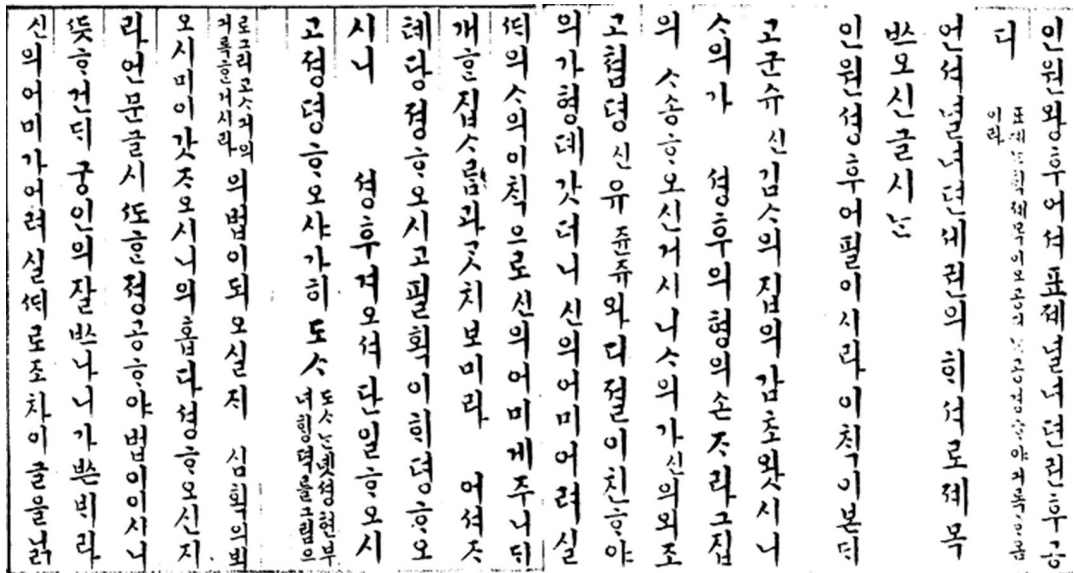 인원왕후어셔표졔녈녀뎐린후궁
디
표졔ᄂᆞᆫ칙졔목이오공의ᄂᆞᆫ공경ᄒᆞ야거록ᄒᆞ옴
이라
언셔녈녀뎐세권의ᄒᆡ셔로졔목
쓰오신글시ᄂᆞᆫ
인원셩후어필이시라이칙이본ᄃᆡ
고군슈신김ᄉᆞ의집의감초왓시니
ᄉᆞ의가 셩후의형의손ᄌᆞ라그집
의 ᄉᆞ송ᄒᆞ오신거시니ᄉᆞ의가신의외조
고쳠뎡신유쥰쥬와디졀이친ᄒᆞ야
의가형뎨갓더니신의어미어려실
ᄯᅢ의ᄉᆞ의이칙으로신의어미게주니ᄃᆡ
개ᄒᆞᆫ집ᄉᆞ람과곳치보미라 어셔ᄌᆞ
톄당졍ᄒᆞ오시고필획이ᄒᆡ뎡ᄒᆞ오
시니 셩후겨오셔단일ᄒᆞ오시
고졍뎡ᄒᆞ오샤가히도ᄉᆞ
도ᄉᆞᄂᆞᆫ녯셩현부
녀ᄒᆡᆼ덕을그림으
로그리고ᄉᆞ긔의
거록ᄒᆞᆫ거시라
의법이되오실지 심획의뵈
오시미이갓ᄌᆞ오시니의흡다셩ᄒᆞ오신지
라언문글시ᄯᅩᄒᆞᆫ졍공ᄒᆞ야법이이시니
ᄯᅳᆺᄒᆞ건ᄃᆡ궁인의잘쓰나니가쓴ᄇᆡ라
신의어미가어려실ᄯᅢ로조차이글을닑